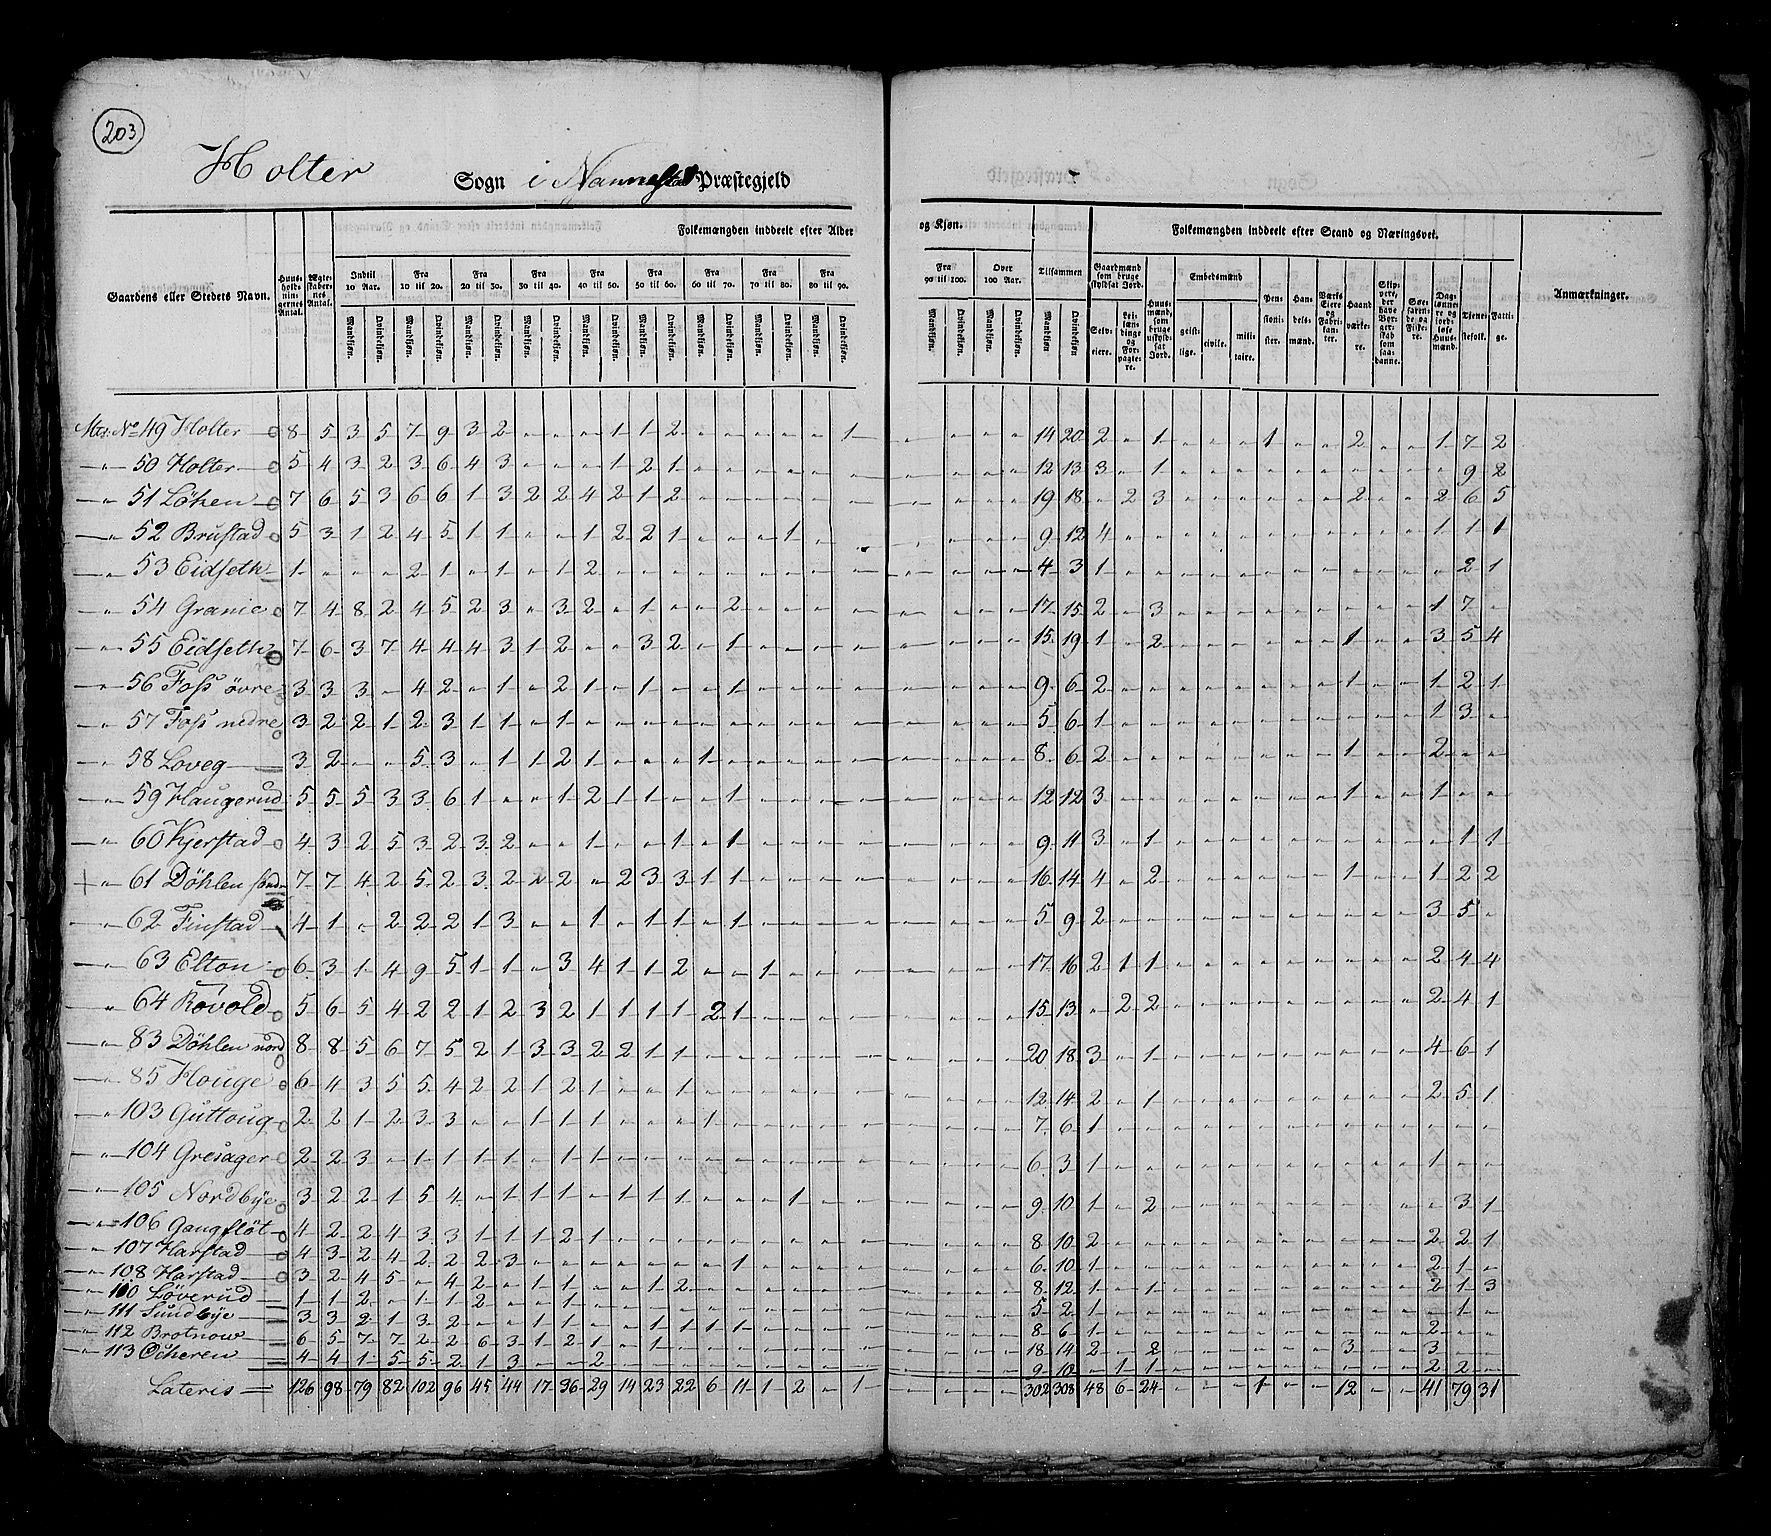 203
Holter Sogn i Nannestad Præstegjeld
Folkemængden inddeelt efter Alder og Kjøn.
Folkemængden inddeelt efter Stand og Næringsvei.
Gaardens eller Stedets Navn.
Huusholdningernes Antal.
Ægteskabernes Antal.
Indtil 10 Aar. Fra 10 til 20. Fra 20 til 30. Fra 30 til 40. Fra 40 til 50. Fra 50 til 60. Fra 60 til 70. Fra 70 til 80. Fra 80 til 90. Fra 90 til 100. Over 100 Aar. Tilsammen
Mandkjøn. Qvindekjøn.
Gaardmænd som bruge skyldsat Jord.
Selveiere. Leilændinge og Forpagtere.
Huusmænd, som bruge uskyldsat Jord.
Embedsmænd
geistlige. civile. militaire.
Pensionister.
Handelsmænd.
Værks Eiere og Fabrikanter.
Haandværkere.
Skippere, der have Borgerskab som saadanne.
Søefarende og Fiskere.
Dagslønnere og jordløse Huusmænd.
Tjenestefolk.
Fattige.
Anmærkninger.
Mtr: No 49 Holter 8 5 3 5 7 9 3 2 " " " 1 1 2 " " " " " 1 " " " " 14 20 2 " 1 " " " 1 " " 2 " " 1 7 2
" 50 Holter 5 4 3 2 3 6 4 3 " " " 1 2 1 " " " " " " " " " " 12 13 3 " 1 " " " " " " " " " " 9 2
" 51 Löken 7 6 5 3 6 6 1 3 2 2 4 2 1 2 " " " " " " " " " " 19 18 " 2 3 " " " " " " 2 " " 2 6 5
" 52 Brustad 5 3 1 2 4 5 1 1 " " 1 2 2 1 " " " 1 " " " " " " 9 12 4 " " " " " " " " " " " 1 1 1
" 53 Eidseth 1 " " " 2 1 " 1 " 1 2 " " " " " " " " " " " " " 4 3 1 " " " " " " " " " " " " 2 1
" 54 Granie 7 4 8 2 4 5 2 3 " 3 2 " 1 " " 2 " " " " " " " " 17 15 2 " 3 " " " " " " " " " 1 7 "
" 55 Eidseth 7 6 3 7 4 4 4 3 1 2 " " 3 2 " 1 " " " " " " " " 15 19 1 " 2 " " " " " " 1 " " 3 5 4
" 56 Foss övre 3 3 3 " 4 2 " 1 " 2 1 " 1 " " 1 " " " " " " " " 9 6 2 " " " " " " " " 1 " " 1 2 1
" 57 Foss nedre 3 2 2 1 2 3 1 1 " 1 " " " " " " " " " " " " " " 5 6 1 " " " " " " " " " " " 1 3 "
" 58 Loveg 3 2 " " 5 3 " 1 1 2 1 " " " 1 " " " " " " " " " 8 6 2 " " " " " " " " 1 " " 2 " "
" 59 Haugerud 5 5 5 3 3 6 1 " " 1 2 1 1 " " 1 " " " " " " " " 12 12 3 " " " " " " " " 1 " " 1 " "
" 60 Kjerstad 4 3 2 5 3 2 3 2 " " 1 " " 1 " 1 " " " " " " " " 9 11 3 " 1 " " " " " " " " " " 1 1
" 61 Döhlen söndr 7 7 4 2 5 2 3 2 " 2 " 2 3 3 1 1 " " " " " " " " 16 14 4 " 2 " " " " " " 1 " " 1 2 2
" 62 Finstad 4 1 " 2 2 2 1 3 " " 1 " 1 1 " 1 " " " " " " " " 5 9 2 " " " " " " " " " " " 3 5 "
" 63 Elton 6 3 1 4 9 5 1 1 " 3 4 1 1 2 " " 1 " " " " " " " 17 16 2 1 1 " " " " " " " " " 2 4 4
" 64 Rovold 5 6 5 4 2 2 1 2 3 2 1 1 1 1 2 1 " " " " " " " " 15 13 " 2 2 " " " " " " " " " 2 4 1
" 83 Döhlen nord 8 8 5 6 7 5 2 1 3 3 2 2 1 1 " " " " " " " " " " 20 18 3 " 1 " " " " " " " " " 4 6 1
" 85 Houge 6 4 3 5 5 4 2 2 1 2 1 " " 1 " " " " " " " " " " 12 14 2 " 1 " " " " " " " " " 2 5 1
" 103 Guttoug 2 2 1 2 3 3 " " 1 1 1 " " " 1 " " " " " " " " " 7 6 1 " " " " " " " " " " " " " "
" 104 Gresager 2 2 3 " 1 1 1 1 " 1 1 " " " " " " " " " " " " " 6 3 1 " " " " " " " " " " " 1 " "
" 105 Nordbÿe 3 2 2 1 5 4 " 1 1 1 " 1 1 1 " " " 1 " " " " " " 9 10 1 " 2 " " " " " " " " " " 3 1
" 106 Gangflöt 4 2 2 4 3 3 1 1 1 2 1 " " " " " " " " " " " " " 8 10 2 " " " " " " " " " " " 2 2 1
" 107 Harstad 4 3 2 4 2 2 2 3 " " " " " " " 1 " " " " " " " " 6 10 1 " " " " " " " " " " " 2 1 "
" 108 Harstad 3 2 4 5 " 4 2 " 1 1 " " 1 2 " " " " " " " " " " 8 12 1 " 1 " " " " " " " " " 2 1 3
" 110 Löverud 1 1 2 " 1 1 2 " " 1 " " " " " " " " " " " " " " 5 2 1 " " " " " " " " " " " " 1 "
" 111 Sundbÿe 3 3 2 1 3 2 " " 1 " " 1 1 1 1 " " " " " " " " 8 6 1 " " " " " " " " " " " 2 " "
" 112 Brotnow 6 5 7 7 2 2 6 3 1 2 1 " 1 " " " " " " " " " " " 18 14 2 " 2 " " " " " " 3 " " 3 " "
" 113 Ocheren 4 4 1 5 5 2 1 3 " " 2 " " " " " " " " " " " " " 9 10 " 1 1 " " " " " " " " " 2 2 "
Lateris 126 98 79 82 102 96 45 44 17 36 29 14 23 22 6 11 1 2 " 1 " " " " 302 308 48 6 24 " " " 1 " " 12 " " 41 79 31